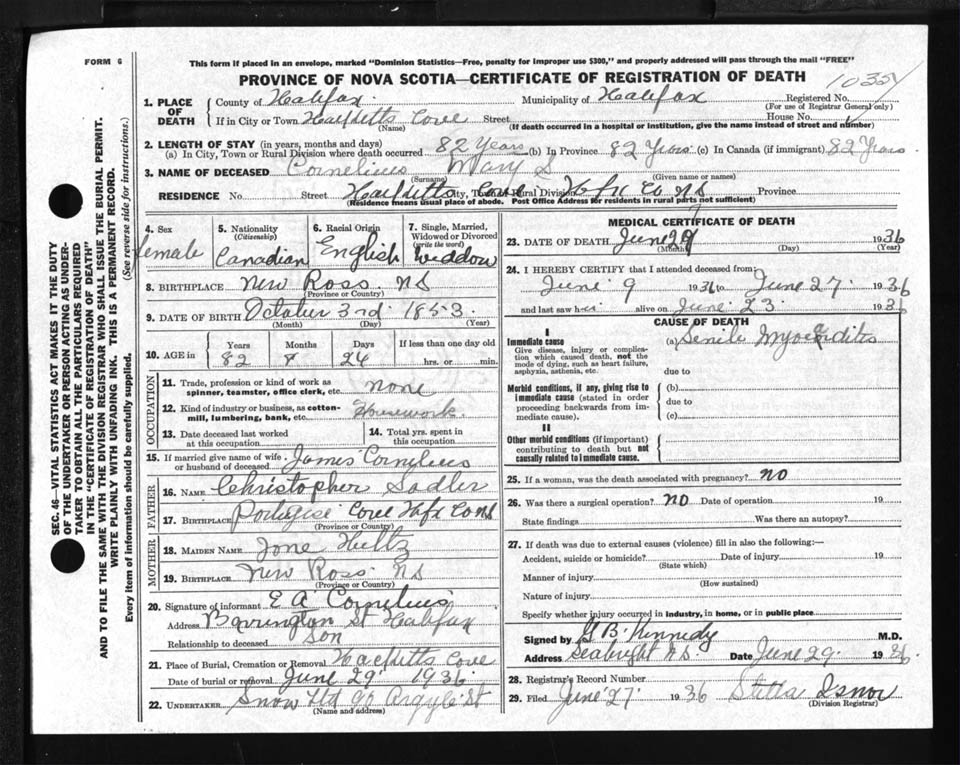 FORM 6
This form if placed in an envelope, marked "Dominion Statistics—Free, penalty for improper use $300," and properly addressed will pass through the mail "FREE"
PROVINCE OF NOVA SCOTIA—CERTIFICATE OF REGISTRATION OF DEATH
SEC. 46—VITAL STATISTICS ACT MAKES IT THE DUTY
OF THE UNDERTAKER OR PERSON ACTING AS UNDER-
TAKER TO OBTAIN ALL THE PARTICULARS REQUIRED
IN THE "CERTIFICATE OF REGISTRATION OF DEATH"
AND TO FILE THE SAME WITH THE DIVISION REGISTRAR WHO SHALL ISSUE THE BURIAL PERMIT.
WRITE PLAINLY WITH UNFADING INK. THIS IS A PERMANENT RECORD.
Every item of information should be carefully supplied. (See reverse side for instructions.)
1. PLACE OF DEATH County of Halifax Municipality of Halifax Registered No.
(For use of Registrar General only)
If in City or Town Hacketts Cove Street House No.
(Name) (If death occurred in a hospital or institution, give the name instead of street and number)
2. LENGTH OF STAY (in years, months and days)
(a) In City, Town or Rural Division where death occurred 82 Years (b) In Province 82 Years (c) In Canada (if immigrant) 82 Years
3. NAME OF DECEASED Cornelius Mary S
(Surname) (Given name or names)
RESIDENCE No. Street Hacketts Cove City, Town or Rural Division Hfx Co NS Province
(Residence means usual place of abode. Post Office Address for residents in rural parts not sufficient)
4. Sex female
5. Nationality (Citizenship) Canadian
6. Racial Origin English
7. Single, Married, Widowed or Divorced (write the word) Widdow
8. BIRTHPLACE New Ross NS
(Province or Country)
9. DATE OF BIRTH October 3rd 1853
(Month) (Day) (Year)
10. AGE in Years Months Days If less than one day old
82 8 24 hrs. or min.
OCCUPATION
11. Trade, profession or kind of work as spinner, teamster, office clerk, etc. none
12. Kind of industry or business, as cotton-mill, lumbering, bank, etc. Housework
13. Date deceased last worked at this occupation
14. Total yrs. spent in this occupation
15. If married give name of wife or husband of deceased James Cornelius
FATHER
16. NAME Christopher Sadler
17. BIRTHPLACE Portugise Cove Hfx Co NS
(Province or Country)
MOTHER
18. MAIDEN NAME Jane Hiltz
19. BIRTHPLACE New Ross NS
(Province or Country)
20. Signature of informant E A Cornelius
Address Barrington St Halifax
Relationship to deceased Son
21. Place of Burial, Cremation or Removal Hacketts Cove
Date of burial or removal June 29 1936
22. UNDERTAKER Snow Ltd 90 Argyle St
(Name and address)
MEDICAL CERTIFICATE OF DEATH
23. DATE OF DEATH June 27 1936
(Month) (Day) (Year)
24. I HEREBY CERTIFY that I attended deceased from:
June 9 1936 to June 27 1936
and last saw h alive on June 23 1936
CAUSE OF DEATH
I
Immediate cause
Give disease, injury or complication which caused death, not the mode of dying, such as heart failure, asphyxia, asthenia, etc.
(a) Senile Myocarditis
due to
Morbid conditions, if any, giving rise to immediate cause (stated in order proceeding backwards from immediate cause).
(b)
due to
(c)
II
Other morbid conditions (if important) contributing to death but not causally related to immediate cause.
25. If a woman, was the death associated with pregnancy? NO
26. Was there a surgical operation? NO Date of operation 19
State findings Was there an autopsy?
27. If death was due to external causes (violence) fill in also the following:—
Accident, suicide or homicide? Date of injury 19
(State which)
Manner of injury
(How sustained)
Nature of injury
Specify whether injury occurred in industry, in home, or in public place
Signed by G B Kennedy M.D.
Address Seabright N.S. Date June 29 1936
28. Registrar's Record Number
29. Filed June 27 1936 Stella Isnor
(Division Registrar)